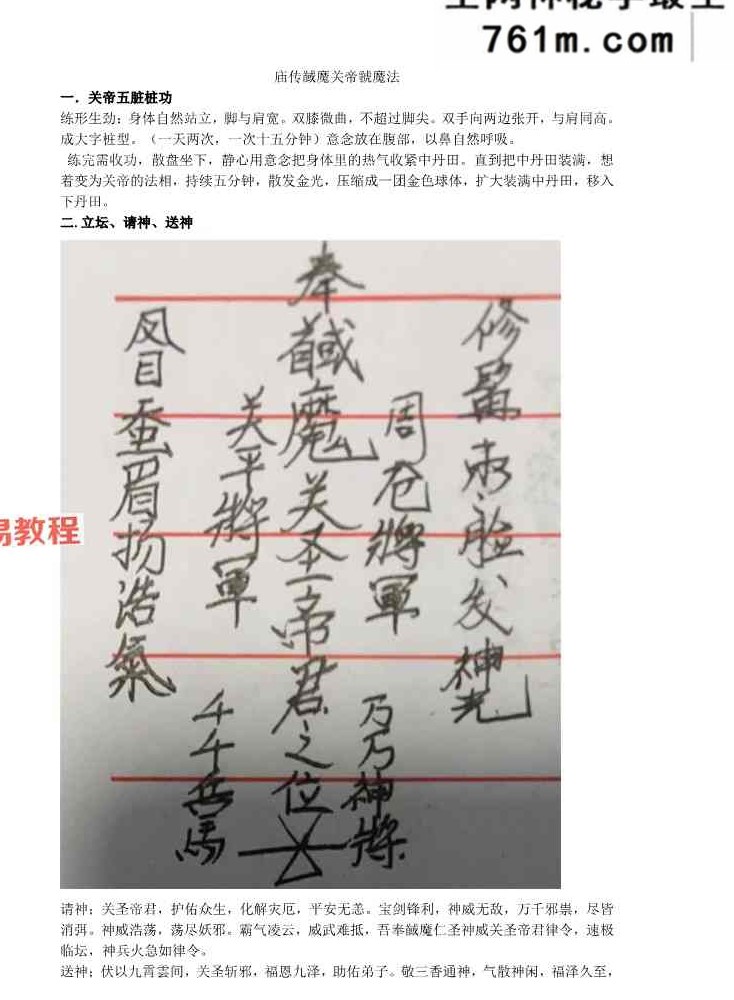 761m.com
庙传馘魔关帝虢魔法
一．关帝五脏桩功
练形生劲：身体自然站立，脚与肩宽。双膝微曲，不超过脚尖。双手向两边张开，与肩同高。
成大字桩型。（一天两次，一次十五分钟）意念放在腹部，以鼻自然呼吸。
练完需收功，散盘坐下，静心用意念把身体里的热气收紧中丹田。直到把中丹田装满，想
着变为关帝的法相，持续五分钟，散发金光，压缩成一团金色球体，扩大装满中丹田，移入
下丹田。
二.立坛、请神、送神
修髯赤脸发神光
周仓將軍
乃乃神將
奉馘魔关圣帝君之位
关平將軍
千千兵馬
凤目蚕眉扬浩氣
易教程
请神：关圣帝君，护佑众生，化解灾厄，平安无恙。宝剑锋利，神威无敌，万千邪祟，尽皆
消弭。神威浩荡，荡尽妖邪。霸气凌云，威武难抵，吾奉馘魔仁圣神威关圣帝君律令，速极
临坛，神兵火急如律令。
送神：伏以九霄雲间，关圣斩邪，福恩九泽，助佑弟子。敬三香通神，气散神闲，福泽久至，